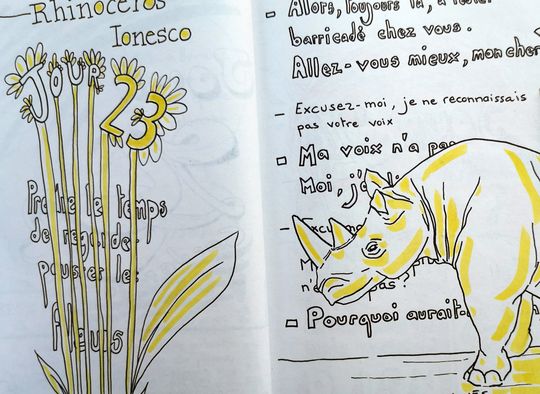 Rhinocéros
Ionesco
JOUR
23
le temps
de
les
fleurs
Alors, toujours là, à rester
barricadé chez vous.
Allez-vous mieux, mon cher
- Excusez-moi, je ne reconnaissais
pas votre voix
Ma voix n'a pas
Moi,
pas?
Pourquoi aurait-